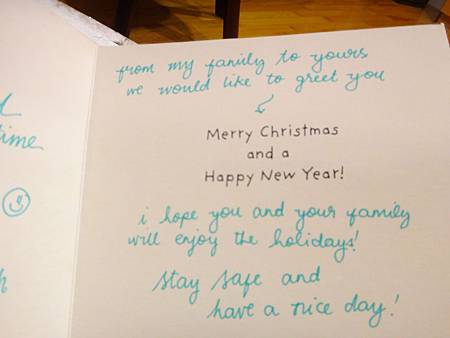 time
from my family to yours
we would like to greet you
Merry Christmas
and a
Happy New Year!
i hope you and your family
will enjoy the holidays!
stay safe and
have a nice day!